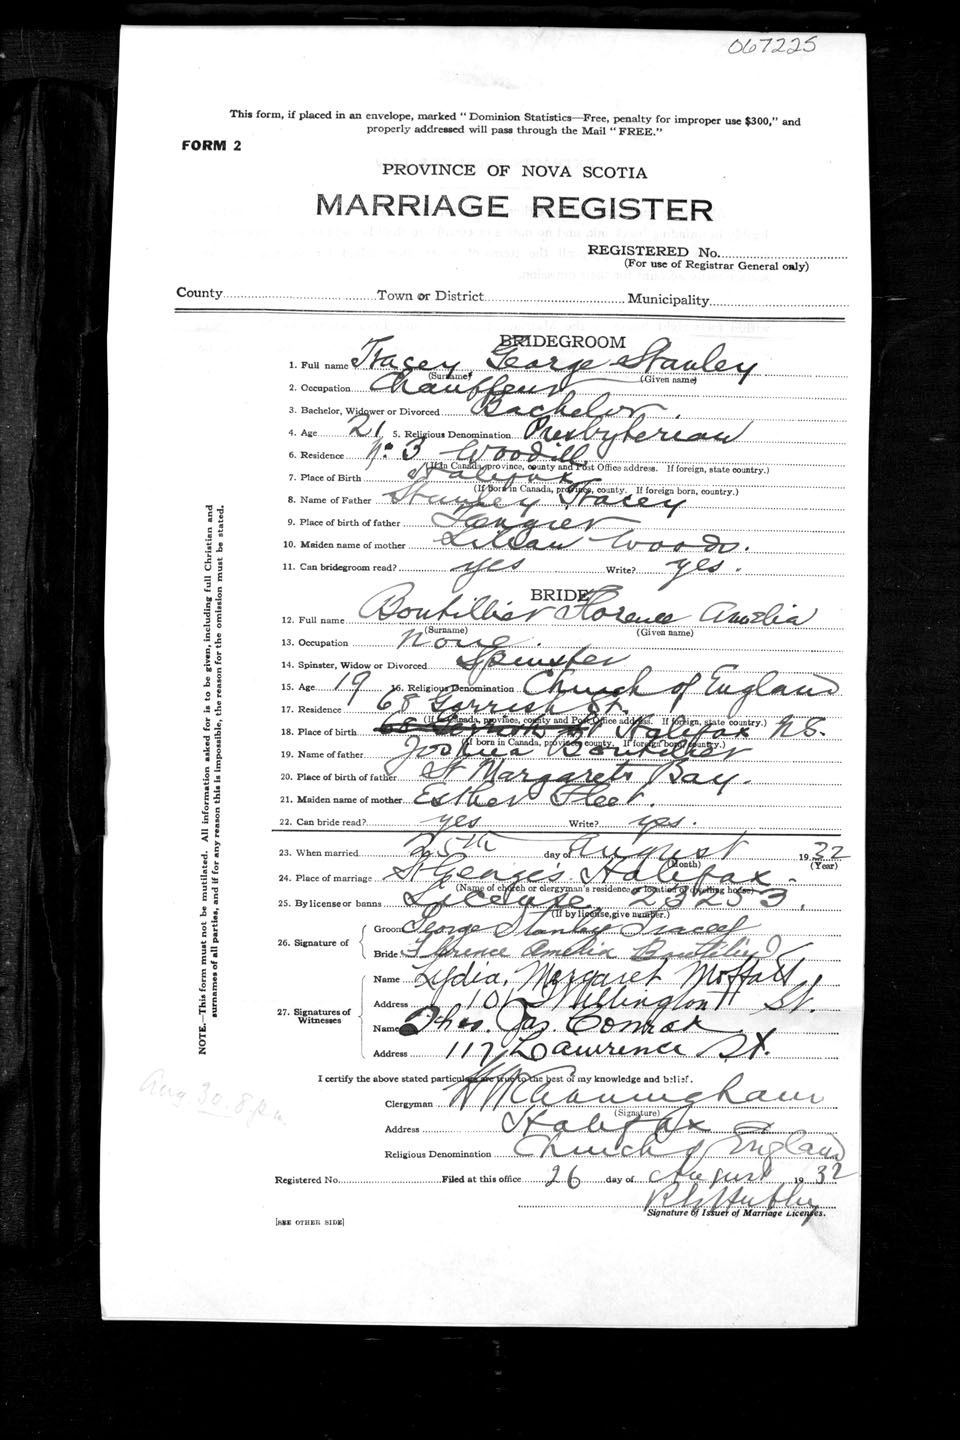 067225
This form, if placed in an envelope, marked "Dominion Statistics—Free, penalty for improper use $300," and
properly addressed will pass through the Mail "FREE."
FORM 2
PROVINCE OF NOVA SCOTIA
MARRIAGE REGISTER
REGISTERED No.
(For use of Registrar General only)
County Town or District Municipality
BRIDEGROOM
1. Full name Tracey George Stanley
(Surname) (Given name)
2. Occupation Chauffeur
3. Bachelor, Widower or Divorced Bachelor.
4. Age 21 5. Religious Denomination Presbyterian
6. Residence No 3 Woodill
(If in Canada, province, county and Post Office address. If foreign, state country.)
7. Place of Birth Halifax
(If born in Canada, province, county. If foreign born, country.)
8. Name of Father Stanley Tracey
9. Place of birth of father Tangier
10. Maiden name of mother Lilian Woods.
11. Can bridegroom read? yes Write? yes.
BRIDE
12. Full name Boutillier Florence Amelia
(Surname) (Given name)
13. Occupation None.
14. Spinster, Widow or Divorced Spinster
15. Age 19 16. Religious Denomination Church of England
17. Residence 68 Gerrish St.
(If in Canada, province, county and Post Office address. If foreign, state country.)
18. Place of birth Halifax N.S.
(If born in Canada, province, county. If foreign born, country.)
19. Name of father Joshua Boutilier
20. Place of birth of father St Margarets Bay.
21. Maiden name of mother Esther Fleet.
22. Can bride read? yes Write? yes.
23. When married 25th day of August 1932
(Month) (Year)
24. Place of marriage St George's Halifax.
(Name of church or clergyman's residence or location of dwelling house)
25. By license or banns License. 23253.
(If by license, give number.)
26. Signature of
Groom George Stanley Tracey
Bride Florence Amelia Boutilier
27. Signatures of Witnesses
Name Lydia Margaret Moffatt
Address 101 Willington St.
Name Thos. Jas. Conrad
Address 117 Lawrence St.
I certify the above stated particulars are true to the best of my knowledge and belief.
Clergyman Cunningham
(Signature)
Address Halifax
Religious Denomination Church of England
Registered No. Filed at this office 26 day of August 1932
Signature of Issuer of Marriage Licenses.
[SEE OTHER SIDE]
NOTE.—This form must not be mutilated. All information asked for is to be given, including full Christian and
surnames of all parties, and if for any reason this is impossible, the reason for the omission must be stated.
Aug 30. 8 p.m.